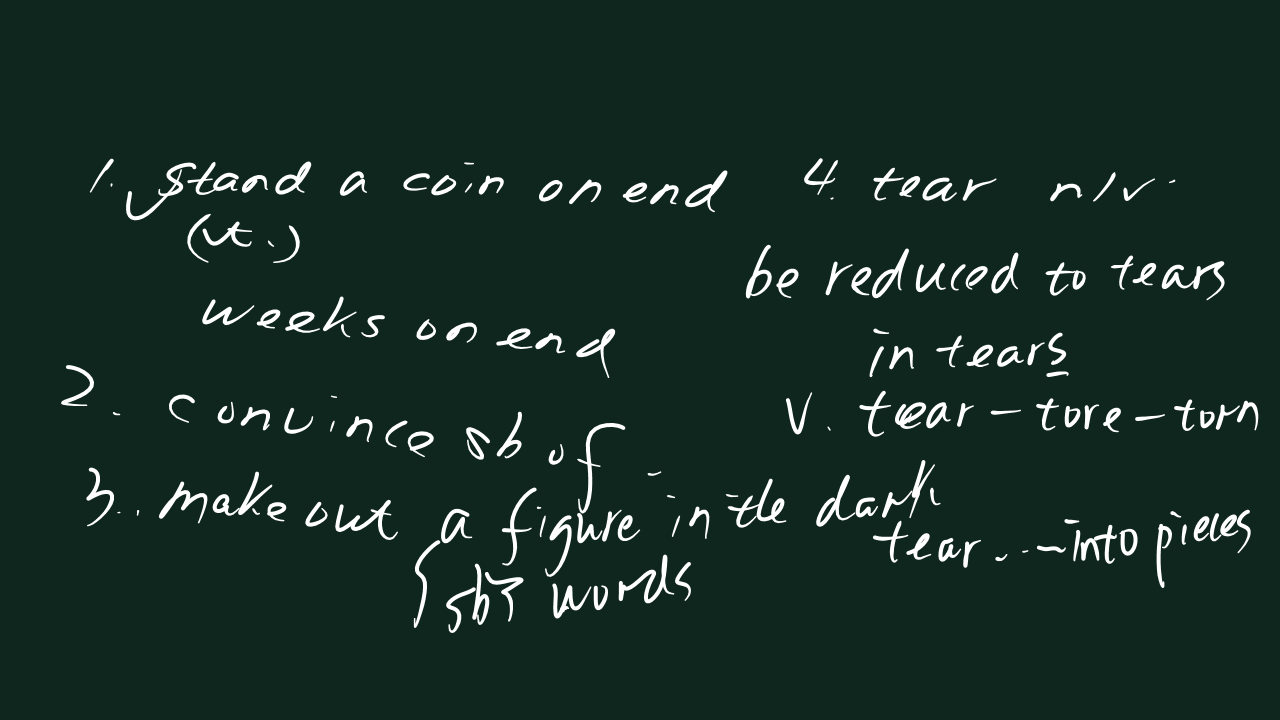 1. stand a coin on end
(vt.)
weeks on end
2. convince sb of
3. make out a figure in the dark
sb's words
4. tear n/v.
be reduced to tears
in tears
V. tear - tore - torn
tear ... into pieces